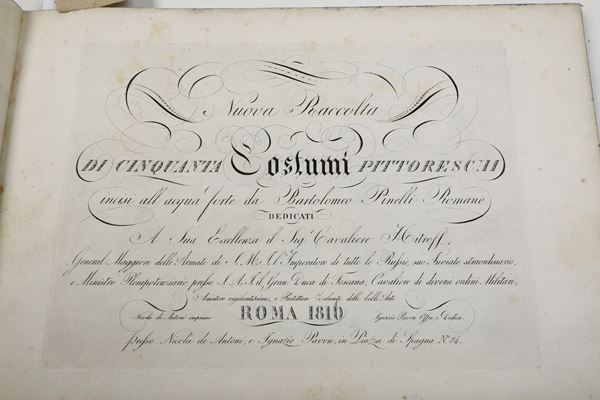 Nuova Raccolta
DI CINQUANTA Costumi PITTORESCHI
incisi all'acqua forte da Bartolomeo Pinelli Romano
DEDICATI
A Sua Eccellenza il Sigr. Cavaliere Hitroff,
General Maggiore delle Armate di S. M. I. l'Imperatore di tutte le Russie, suo Inviato straordinario,
e Ministro Plenipotenziario presso S. A. I. il Gran Duca di Toscana, Cavaliere di diversi ordini Militari,
Amatore e Protettore delle belle Arti.
Nicola de Antoni impresse ROMA 1816 Ignazio Pavon e Dedica.
presso Nicola de Antoni, e Ignazio Pavon, in Piazza di Spagna N.º 84.